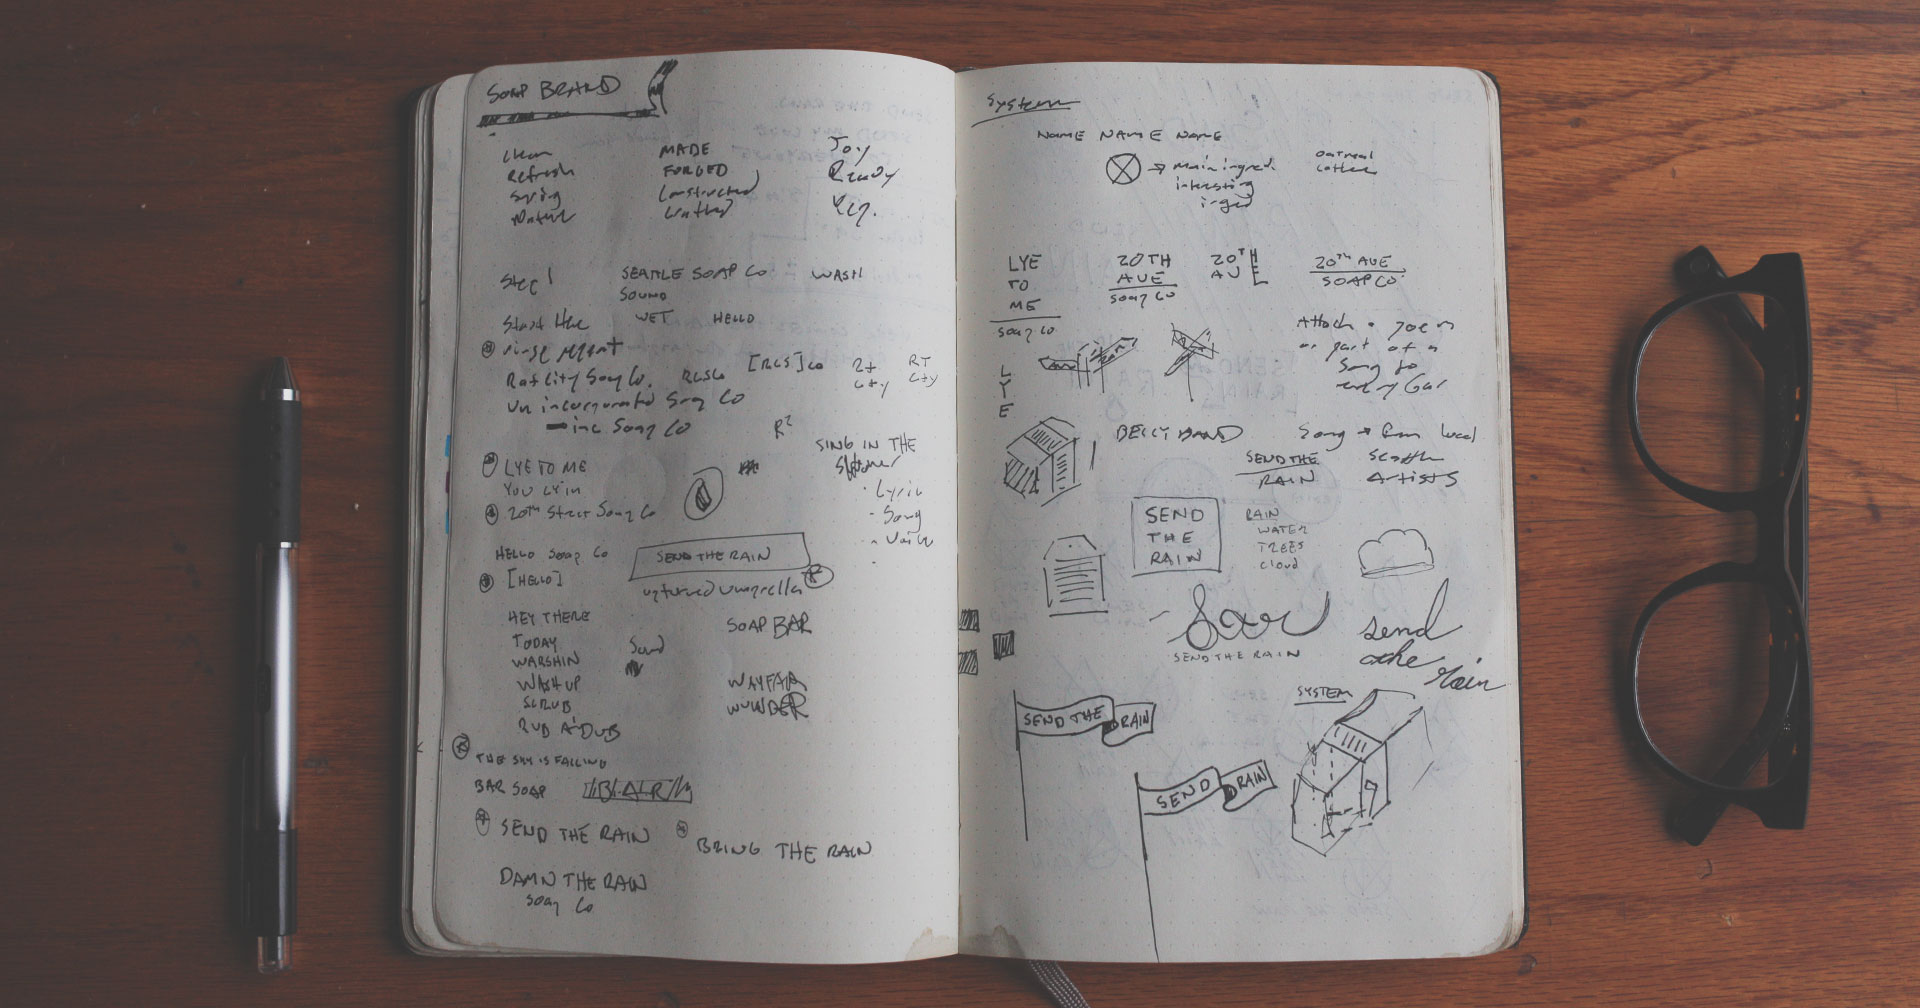 SOAP BRAND
clean
Refresh
Spring
Nature
MADE
FORGED
Constructed
Crafted
Joy
Ready
Step 1
SEATTLE SOAP CO
SOUND
WASH
Start Here
WET
HELLO
rinse repeat
Rat City Soap Co.
RCSCo
[RCS]Co
Rt
City
RT
City
Un incorporated Soap Co
inc Soap Co
R2
SING IN THE
Shower
- Lyric
- Song
LYE TO ME
YOU LYIN
20TH Street Soap Co
HELLO Soap Co
[HELLO]
SEND THE RAIN
upturned umbrella
HEY THERE
TODAY
WARSHIN
WASH UP
SCRUB
RUB A DUB
SOAP BAR
WAYFAIR
WUNDER
THE SKY IS FALLING
BAR SOAP
BAR
SEND THE RAIN
BRING THE RAIN
DAMN THE RAIN
Soap Co
System
NAME NAME NAME
main ingred.
interesting
ingred
oatmeal
LYE
TO
ME
Soap Co
20TH
AVE
Soap Co
20TH
AVE
20TH AVE
SOAP CO
Attach a poem
or part of a
Song to
every bar
LYE
BELLY BAND
Song → from local
Seattle
Artists
SEND THE
RAIN
SEND
THE
RAIN
RAIN
WATER
TREES
cloud
SEND THE RAIN
send
the
rain
SEND THE RAIN
SYSTEM
SEND RAIN